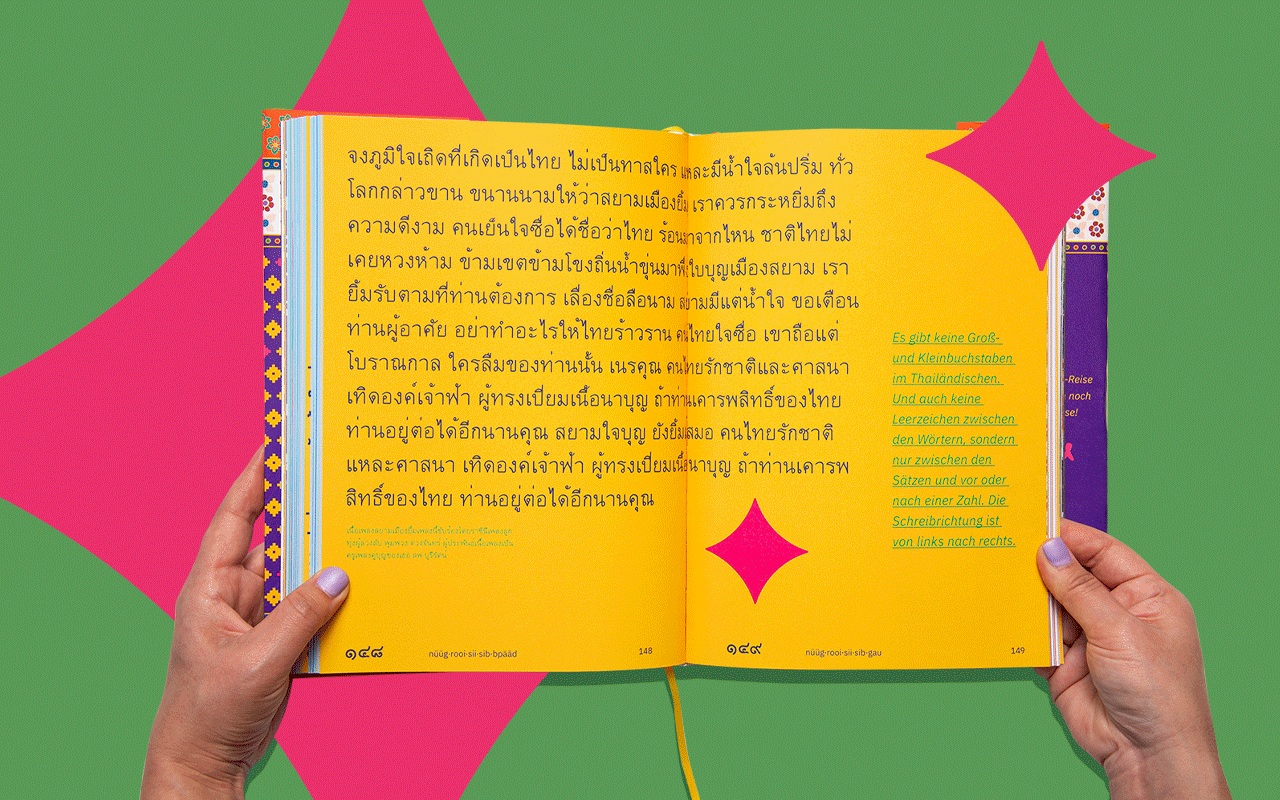 จงภูมิใจเถิดที่เกิดเป็นไทย ไม่เป็นทาสใคร แหละมีน้ำใจล้นปริ่ม ทั่ว
โลกกล่าวขาน ขนานนามให้ว่าสยามเมืองยิ้ม เราควรกระหยิ่มถึง
ความดีงาม คนเย็นใจซื่อได้ชื่อว่าไทย ร้อนมาจากไหน ชาติไทยไม่
เคยหวงห้าม ข้ามเขตข้ามโขงถิ่นน้ำขุ่นมาพึ่งใบบุญเมืองสยาม เรา
ยิ้มรับตามที่ท่านต้องการ เลื่องชื่อลือนาม สยามมีแต่น้ำใจ ขอเตือน
ท่านผู้อาศัย อย่าทำอะไรให้ไทยร้าวราน คนไทยใจซื่อ เขาถือแต่
โบราณกาล ใครลืมของท่านนั้น เนรคุณ คนไทยรักชาติและศาสนา
เทิดองค์เจ้าฟ้า ผู้ทรงเปี่ยมเนื้อนาบุญ ถ้าท่านเคารพสิทธิ์ของไทย
ท่านอยู่ต่อได้อีกนานคุณ สยามใจบุญ ยังยิ้มเสมอ คนไทยรักชาติ
แหละศาสนา เทิดองค์เจ้าฟ้า ผู้ทรงเปี่ยมเนื้อนาบุญ ถ้าท่านเคารพ
สิทธิ์ของไทย ท่านอยู่ต่อได้อีกนานคุณ
๑๔๘ nüüg·rooi·sii·sib·bpääd 148
Es gibt keine Groß-
und Kleinbuchstaben
im Thailändischen.
Und auch keine
Leerzeichen zwischen
den Wörtern, sondern
nur zwischen den
Sätzen und vor oder
nach einer Zahl. Die
Schreibrichtung ist
von links nach rechts.
๑๔๙ nüüg·rooi·sii·sib·gau 149
-Reise
noch
se!